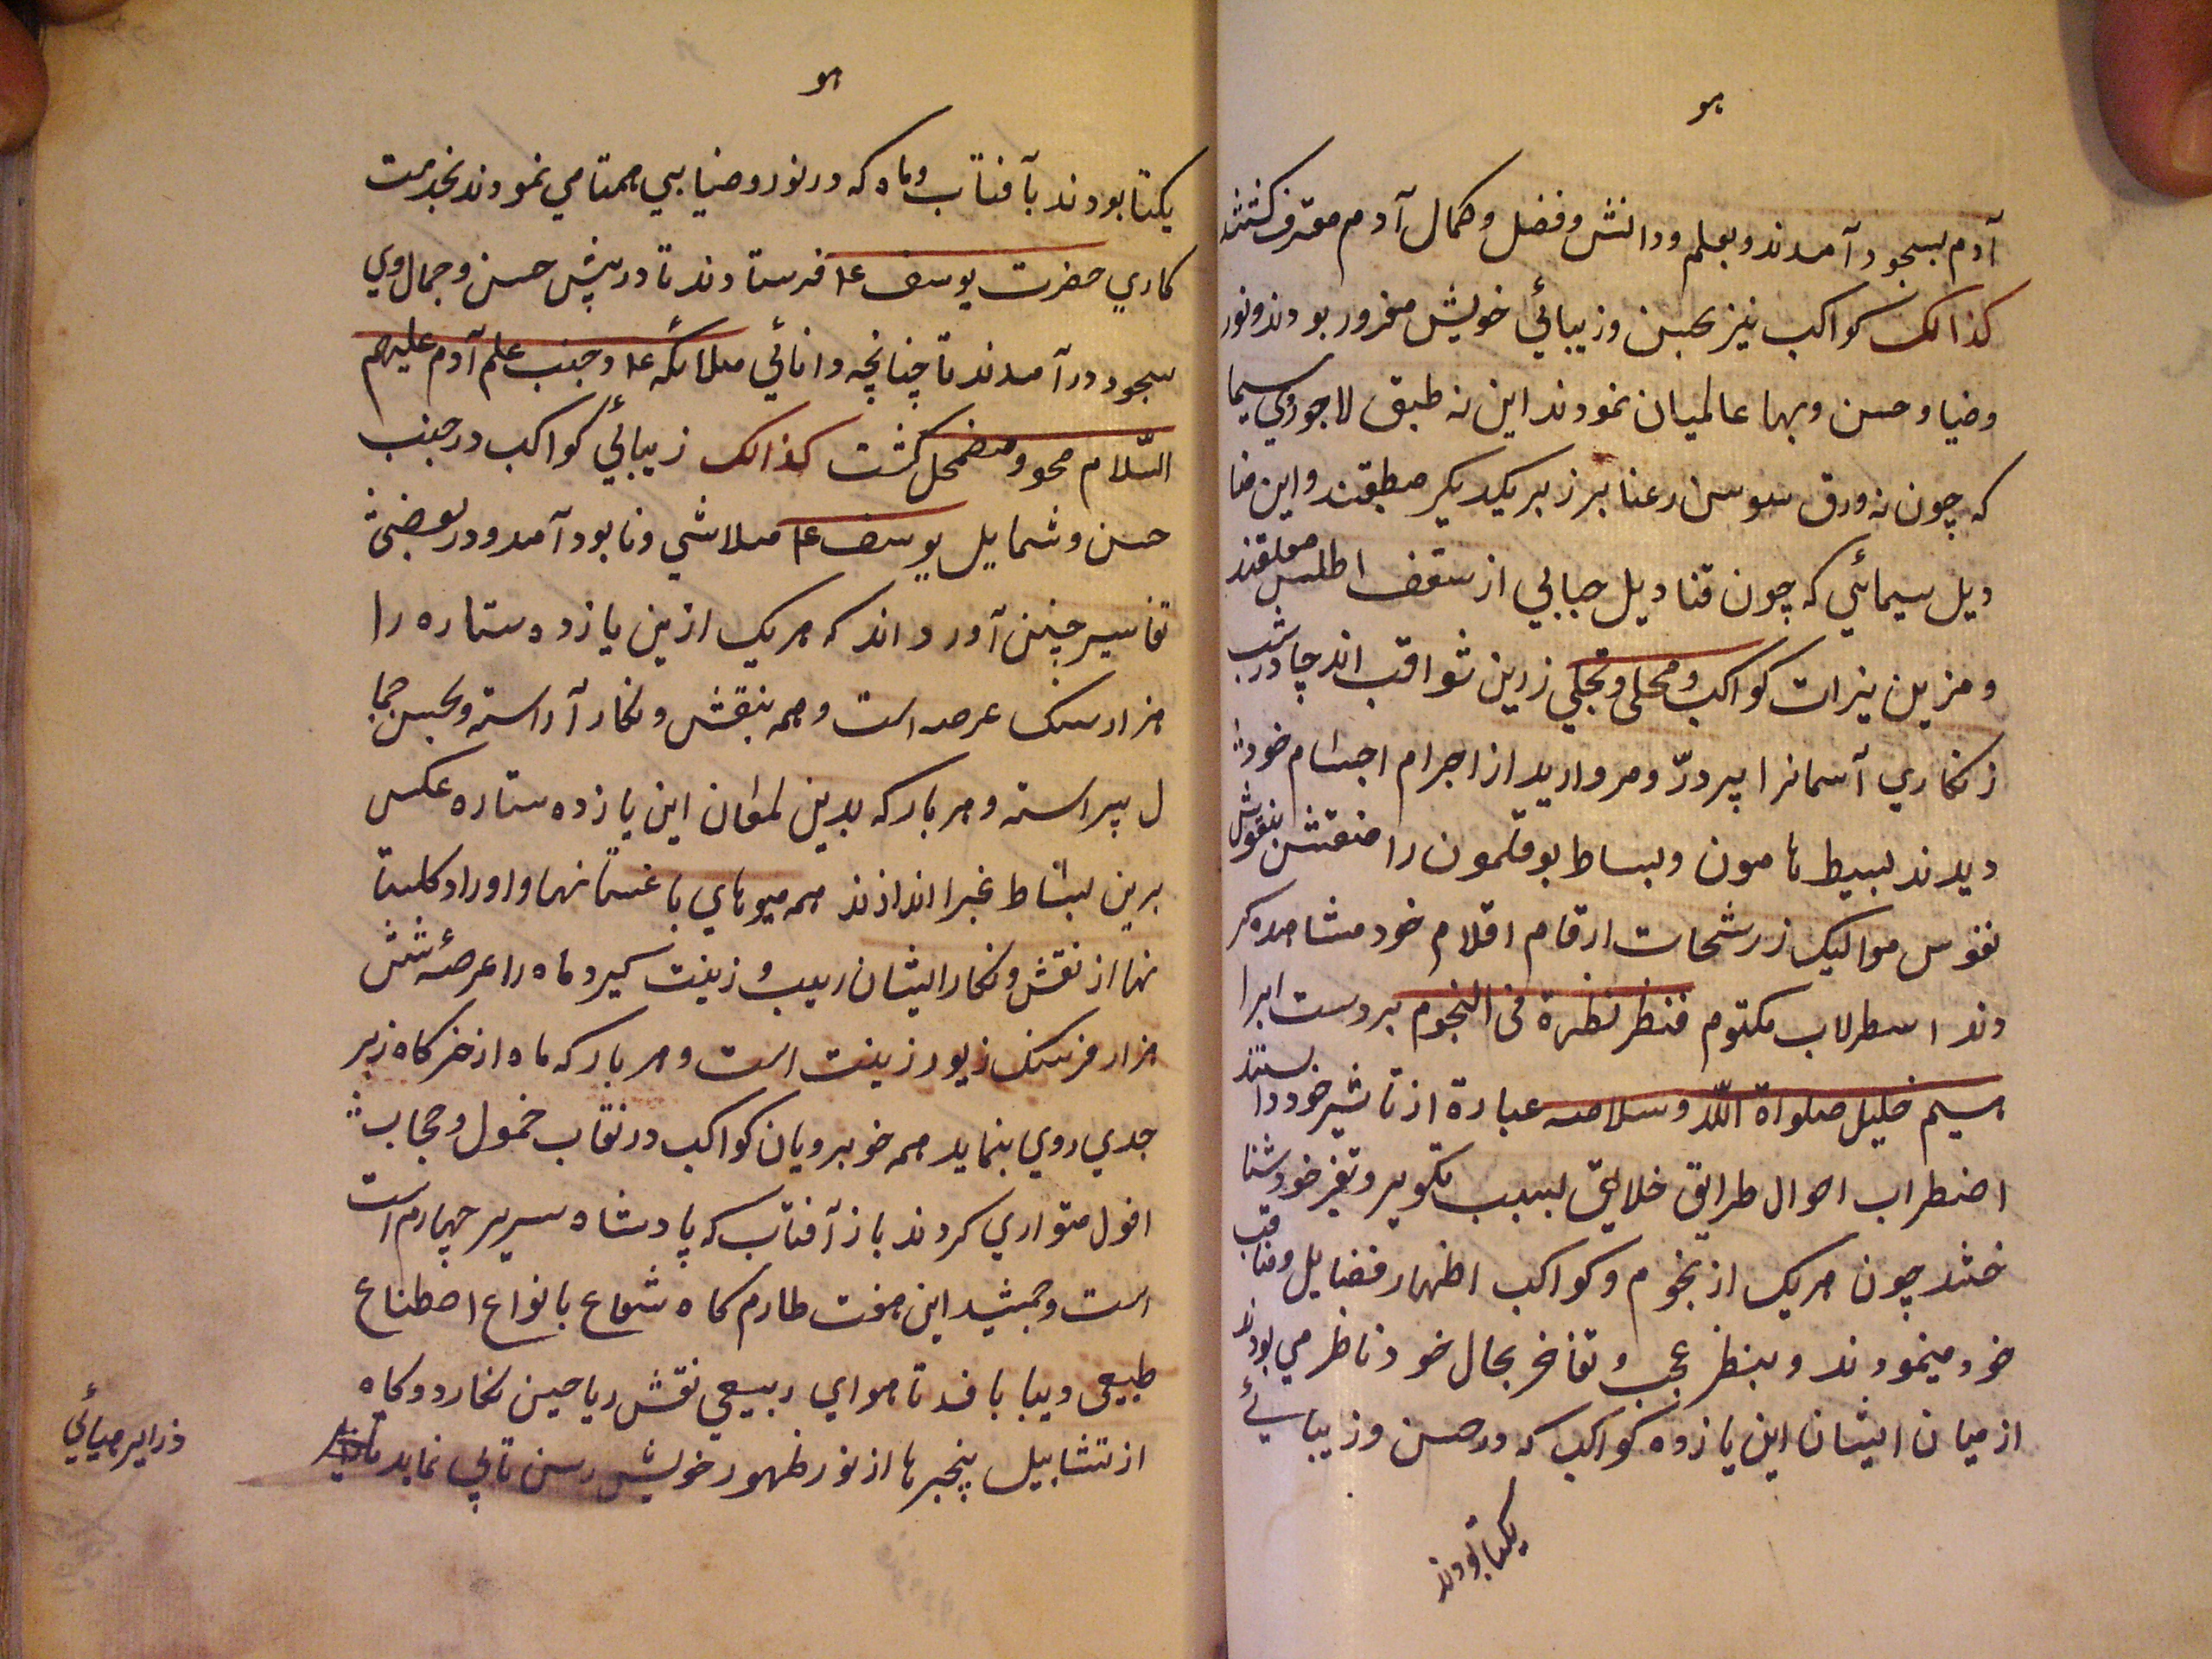 هو
آدم بسجود آمدند و بعلم و دانش و فضل و کمال آدم معترف کشتند
کذالک کواکب نیز بحسن و زیبائی خویش مغرور بودند و نور
و ضیا و حسن و بها عالمیان نمودند این نه طبق لاجوردی سیما
که چون نه ورق سوسن رعنا بر زبر یکدیکر مطبقند و این قنا
دیل سیمائی که چون قنادیل حبابی از سقف اطلس معلقند
و مزین نیرات کواکب و محلی و تجلی زرین ثواقب اند چادر شب
زنکاری آسمانرا پر درّ و مروارید از اجرام اجسام خود
دیدند بسیط هامون و بساط بوقلمون را منقش بنقوش
نفوس موالیک ز رشحات ارقام اقلام خود مشاهده کر
دند اسطرلاب مکتوم فنظر نظرة فی النجوم بر دست ابرا
هیم خلیل صلواة اللّه و سلامه عبارة از تاثیر خود دانستند
اضطراب احوال طرایق خلایق بسبب تکویر و تغیر خود شنا
ختند چون هریک از نجوم و کواکب اظهار فضایل و مناقب
خود مینمودند و بنظر عجب و تفاخر بحال خود ناظر می بودند
از میان ایشان این یازده کواکب که در حسن و زیبائی
یکتا بودند
هو
یکتا بودند بآفتاب و ماه که در نور و ضیا بی همتا می نمودند بخدمت
کاری حضرت یوسف ع‍ فرستادند تا در پیش حسن و جمال وی
بسجود در آمدند تا چنانچه دانائی ملائکه ع‍ در جنب علم آدم علیهم
السّلام محو و مضمحل کشت کذالک زیبائی کواکب در جنب
حسن و شمایل یوسف ع‍ متلاشی و نابود آمد و در بعضی
تفاسیر چنین آورد اند که هریک ازین یازده ستاره را
هزار سنک عرصه است و همه بنقش و نکار آراسته و بحسن جما
ل پیراسته و هر بار که بدین لمعان این یازده ستاره عکس
برین بساط غبرا اندازند همه میوهای باغستانها و اوراد کلستا
نها از نقش و نکار ایشان زیب و زینت کیرد ماه را عرصهٔ شش
هزار فرسنک زیور زینت است و هر بار که ماه از خرکاه زیر
جدی روی بنماید همه خوبرویان کواکب در نقاب خمول و حجاب
افول متواری کردند باز آفتاب که پادشاه سریر چهارم است
است و جمشید این هفت طارم کاه شعاع بانواع اصطناع
طبیعی دیبا بافد تا هوای ربیعی نقش ریاحین نکارد و کاه
از تشابیل پنجرها از نور ظهور خویش رسن تابی نماید تا